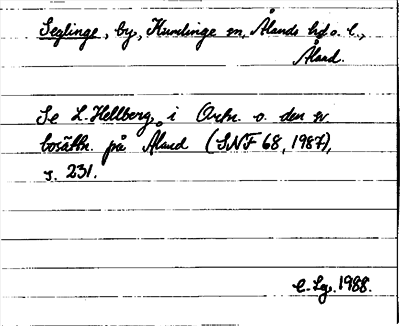 Seglinge, by, Kumlinge sn, Ålands hd o. l.,
Åland.
Se L. Hellberg, i Ortn. o. den sv
bosättn. på Åland (SNF 68, 1987),
s. 231.
1988.